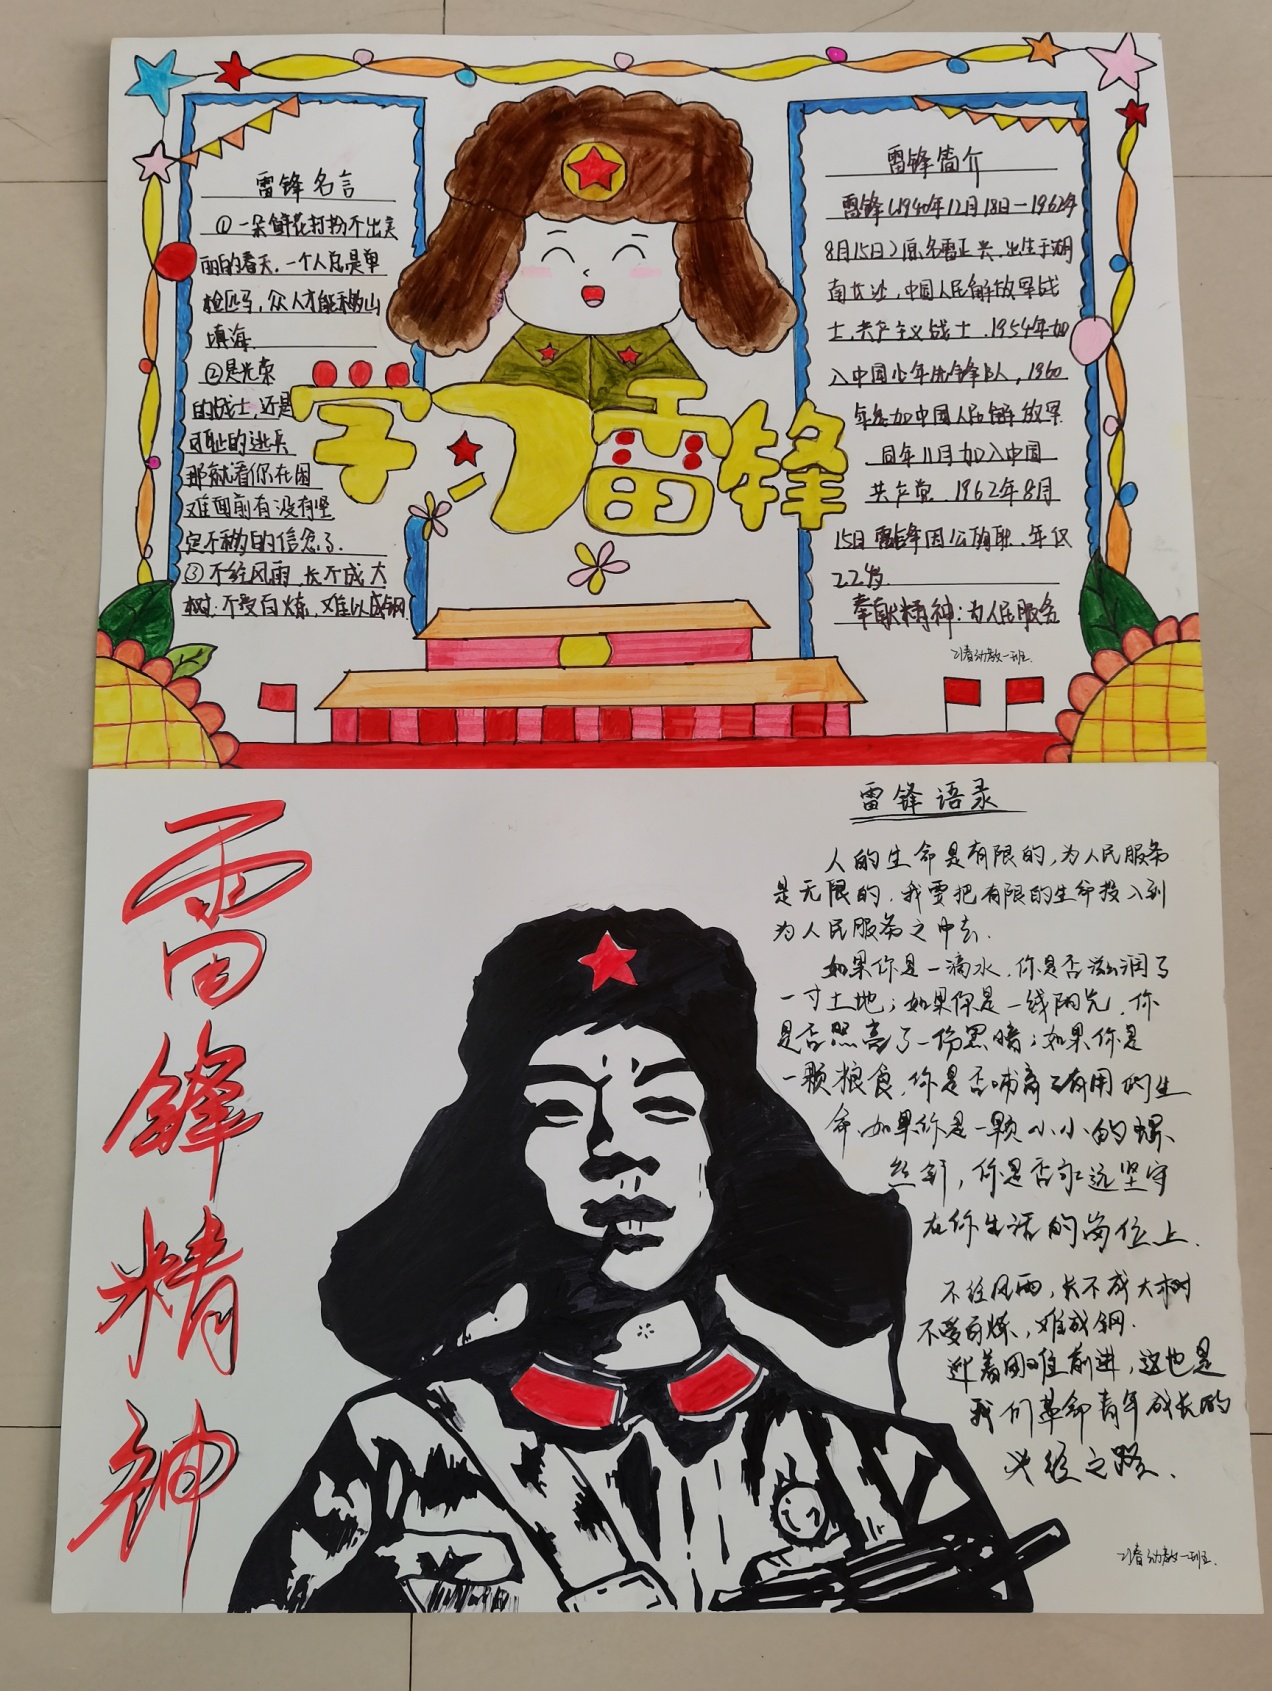 雷锋名言
①一朵鲜花打扮不出美
丽的春天,一个人总是单
枪匹马,众人才能移山
填海.
②是光荣
的战士,还是
可耻的逃兵
那就看你在困
难面前有没有坚
定不移的信念了.
③不经风雨,长不成大
树;不受百炼,难以成钢.
学习雷锋
雷锋简介
雷锋(1940年12月18日—1962年
8月15日)原名雷正兴,出生于湖
南长沙,中国人民解放军战
士,共产主义战士.1954年加
入中国少年先锋队人,1960
年参加中国人民解放军
同年11月加入中国
共产党.1962年8月
15日雷锋因公殉职.年仅
22岁.
奉献精神:为人民服务
21春幼教一班.
雷锋精神
雷锋语录
人的生命是有限的,为人民服务
是无限的.我要把有限的生命投入到
为人民服务之中去.
如果你是一滴水,你是否滋润了
一寸土地;如果你是一线阳光,你
是否照亮了一份黑暗;如果你是
一颗粮食,你是否哺育了有用的生
命.如果你是一颗小小的螺
丝钉,你是否永远坚守
在你生活的岗位上.
不经风雨,长不成大树
不受百炼,难成钢.
迎着困难前进,这也是
我们革命青年成长的
必经之路.
21春幼教一班.